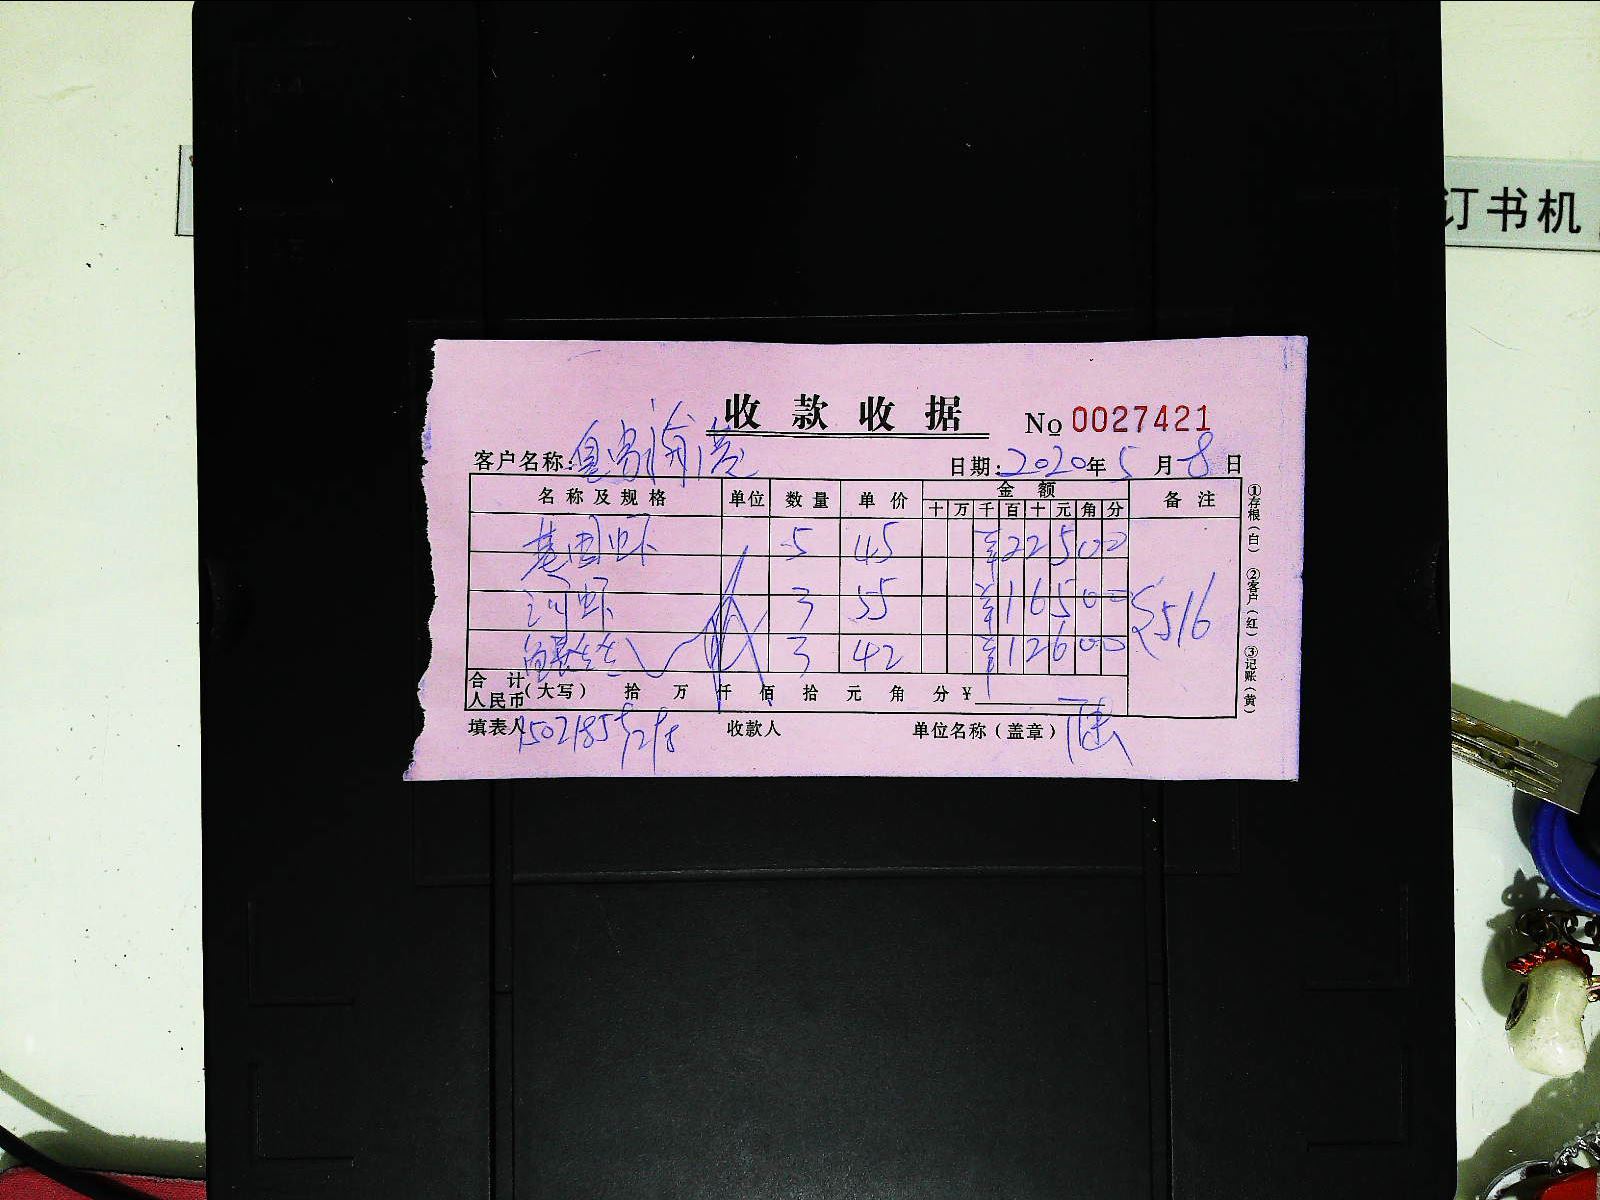 订书机
收款收据 No 0027421
客户名称: 日期: 2020年 5月 8日
名称及规格 单位 数量 单价 金额 备注
十 万 千 百 十 元 角 分
基围虾 5 45 ¥22500
河虾 3 55 ¥16500
3 42 ¥12600
516
合计人民币(大写) 拾 万 仟 佰 拾 元 角 分 ¥
填表人 收款人 单位名称(盖章)
①存根(白) ②客户(红) ③记账(黄)